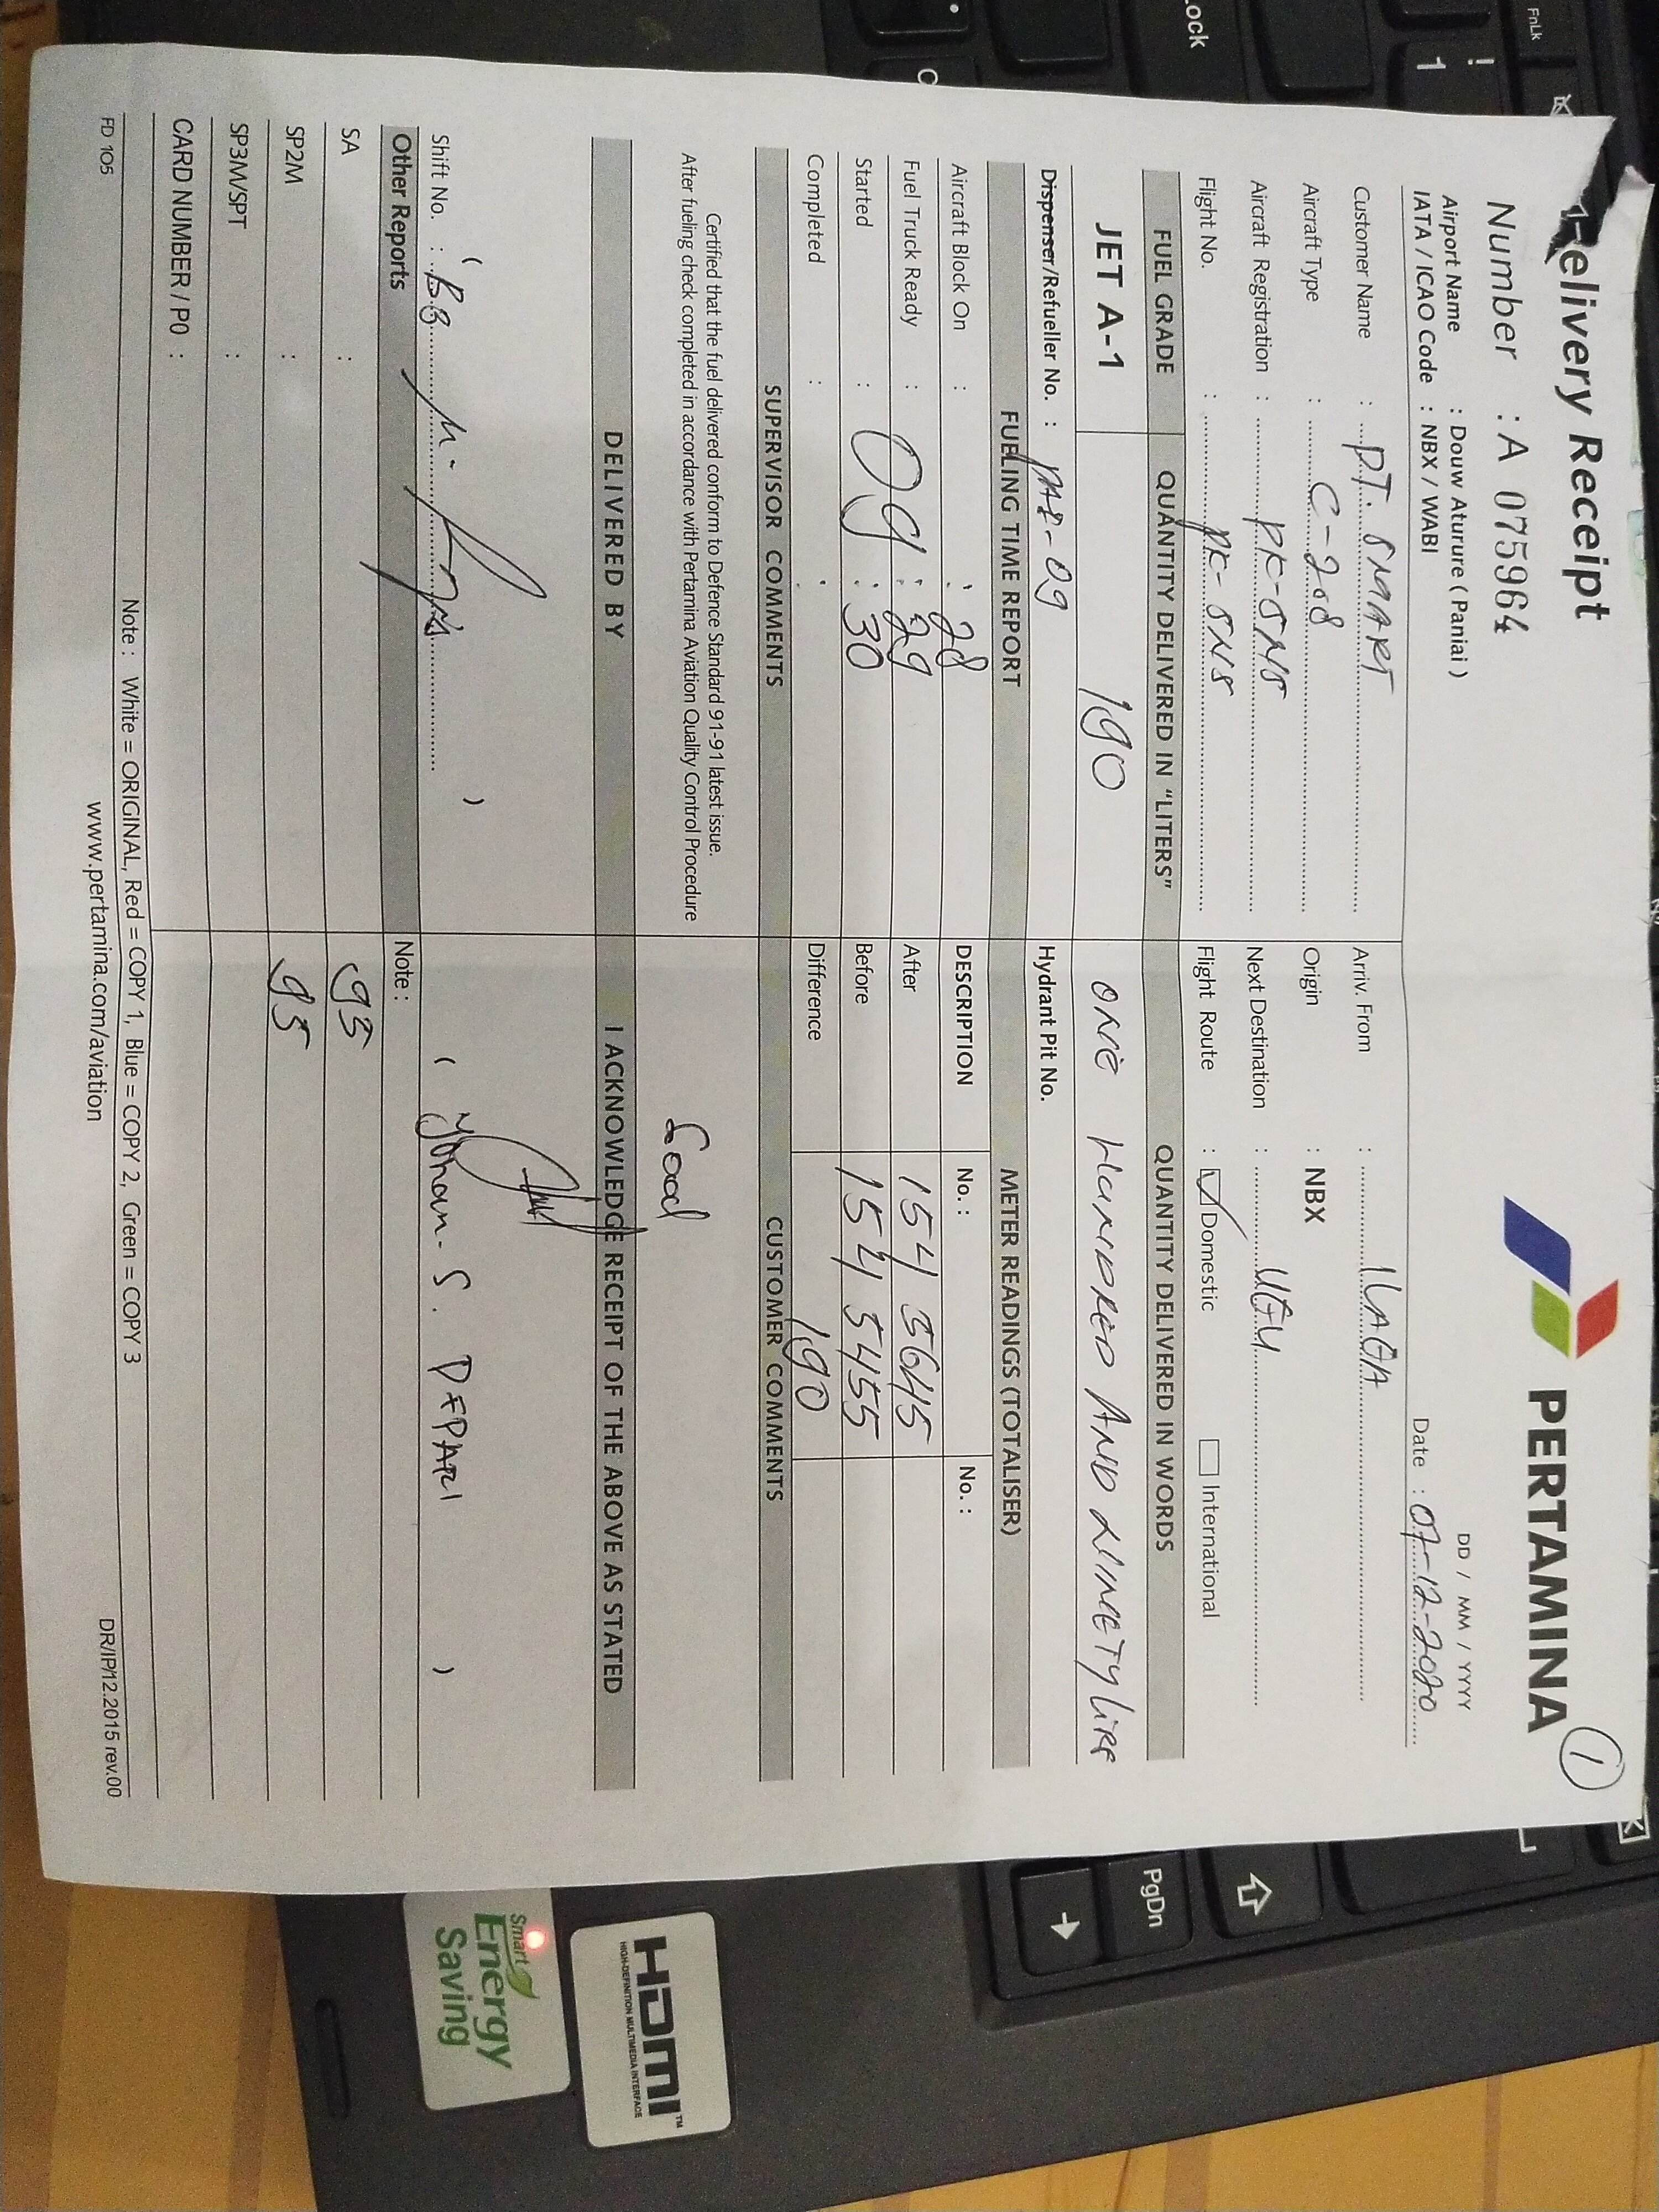 Delivery Receipt
PERTAMINA
1
Number : A 075964
DD / MM / YYYY
Airport Name : Douw Aturure ( Paniai )
IATA / ICAO Code : NBX / WABI
Date : 07-12-2020
Customer Name : PT. SMART
Arriv. From : ILAGA
Aircraft Type : C-208
Origin : NBX
Aircraft Registration : PK-SNS
Next Destination : UGU
Flight No. : PK-SNS
Flight Route : Domestic International
FUEL GRADE QUANTITY DELIVERED IN "LITERS" QUANTITY DELIVERED IN WORDS
JET A-1 190 ONE HUNDRED AND NINETY LITRE
Dispenser/Refueller No. :
Hydrant Pit No.
FUELING TIME REPORT METER READINGS (TOTALISER)
Aircraft Block On : : 28
DESCRIPTION No. : No. :
Fuel Truck Ready : 09 : 29
After 154 3645
Started : : 30
Before 154 3455
Completed : :
Difference 190
SUPERVISOR COMMENTS CUSTOMER COMMENTS
Certified that the fuel delivered conform to Defence Standard 91-91 latest issue.
After fueling check completed in accordance with Pertamina Aviation Quality Control Procedure
Good
DELIVERED BY I ACKNOWLEDGE RECEIPT OF THE ABOVE AS STATED
Shift No. :
( )
( Yohan. S. )
Other Reports Note :
SA : 95
SP2M : 95
SP3M/SPT :
CARD NUMBER / PO :
Note : White = ORIGINAL, Red = COPY 1, Blue = COPY 2, Green = COPY 3
FD 105
www.pertamina.com/aviation
DR/IP/12.2015 rev.00
FnLk
!
1
Lock
PgDn
HDMI™
HIGH-DEFINITION MULTIMEDIA INTERFACE
Smart
Energy
Saving